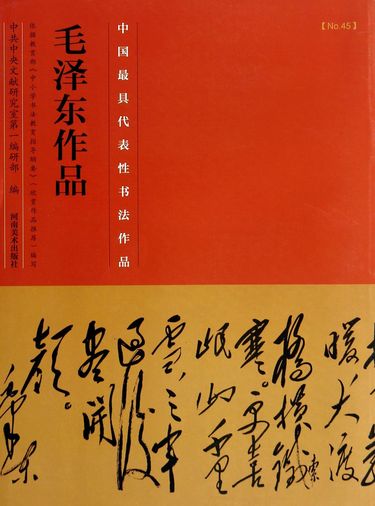 【No.45】
中国最具代表性书法作品
毛泽东作品
依据教育部《中小学书法教育指导纲要》(欣赏作品推荐)编写
中共中央文献研究室第一编研部 编
河南美术出版社
暖大渡
橋横鐵索
寒。更喜
岷山千里
雪三军
过后
尽开
颜。
毛泽东